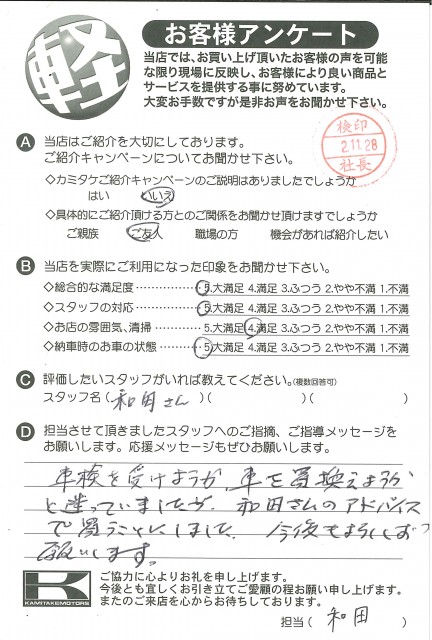 軽
お客様アンケート
当店では、お買い上げ頂いたお客様の声を可能
な限り現場に反映し、お客様により良い商品と
サービスを提供する事に努めています。
大変お手数ですが是非お声をお聞かせ下さい。
A 当店はご紹介を大切にしております。
ご紹介キャンペーンについてお聞かせ下さい。
検印
2.11.28
社長
◇カミタケご紹介キャンペーンのご説明はありましたでしょうか
はい いいえ
◇具体的にご紹介頂ける方とのご関係をお聞かせ頂けますでしょうか
ご親族 ご友人 職場の方 機会があれば紹介したい
B 当店を実際にご利用になった印象をお聞かせ下さい。
◇総合的な満足度 ………… 5.大満足 4.満足 3.ふつう 2.やや不満 1.不満
◇スタッフの対応 ………… 5.大満足 4.満足 3.ふつう 2.やや不満 1.不満
◇お店の雰囲気、清掃 ………… 5.大満足 4.満足 3.ふつう 2.やや不満 1.不満
◇納車時のお車の状態 ………… 5.大満足 4.満足 3.ふつう 2.やや不満 1.不満
C 評価したいスタッフがいれば教えてください。(複数回答可)
スタッフ名 ( 和田さん )( )( )
D 担当させて頂きましたスタッフへのご指摘、ご指導メッセージを
お願いします。応援メッセージもぜひお願いします。
車検を受けようか、車を買換えようか
と迷っていましたが、和田さんのアドバイス
で買うことにしました。今後もよろしくお
願いします。
K
KAMITAKEMOTORS
ご協力に心よりお礼を申し上げます。
今後とも宜しくお引き立てご愛顧の程お願い申し上げます。
またのご来店を心からお待ちしております。
担当 ( 和田 )